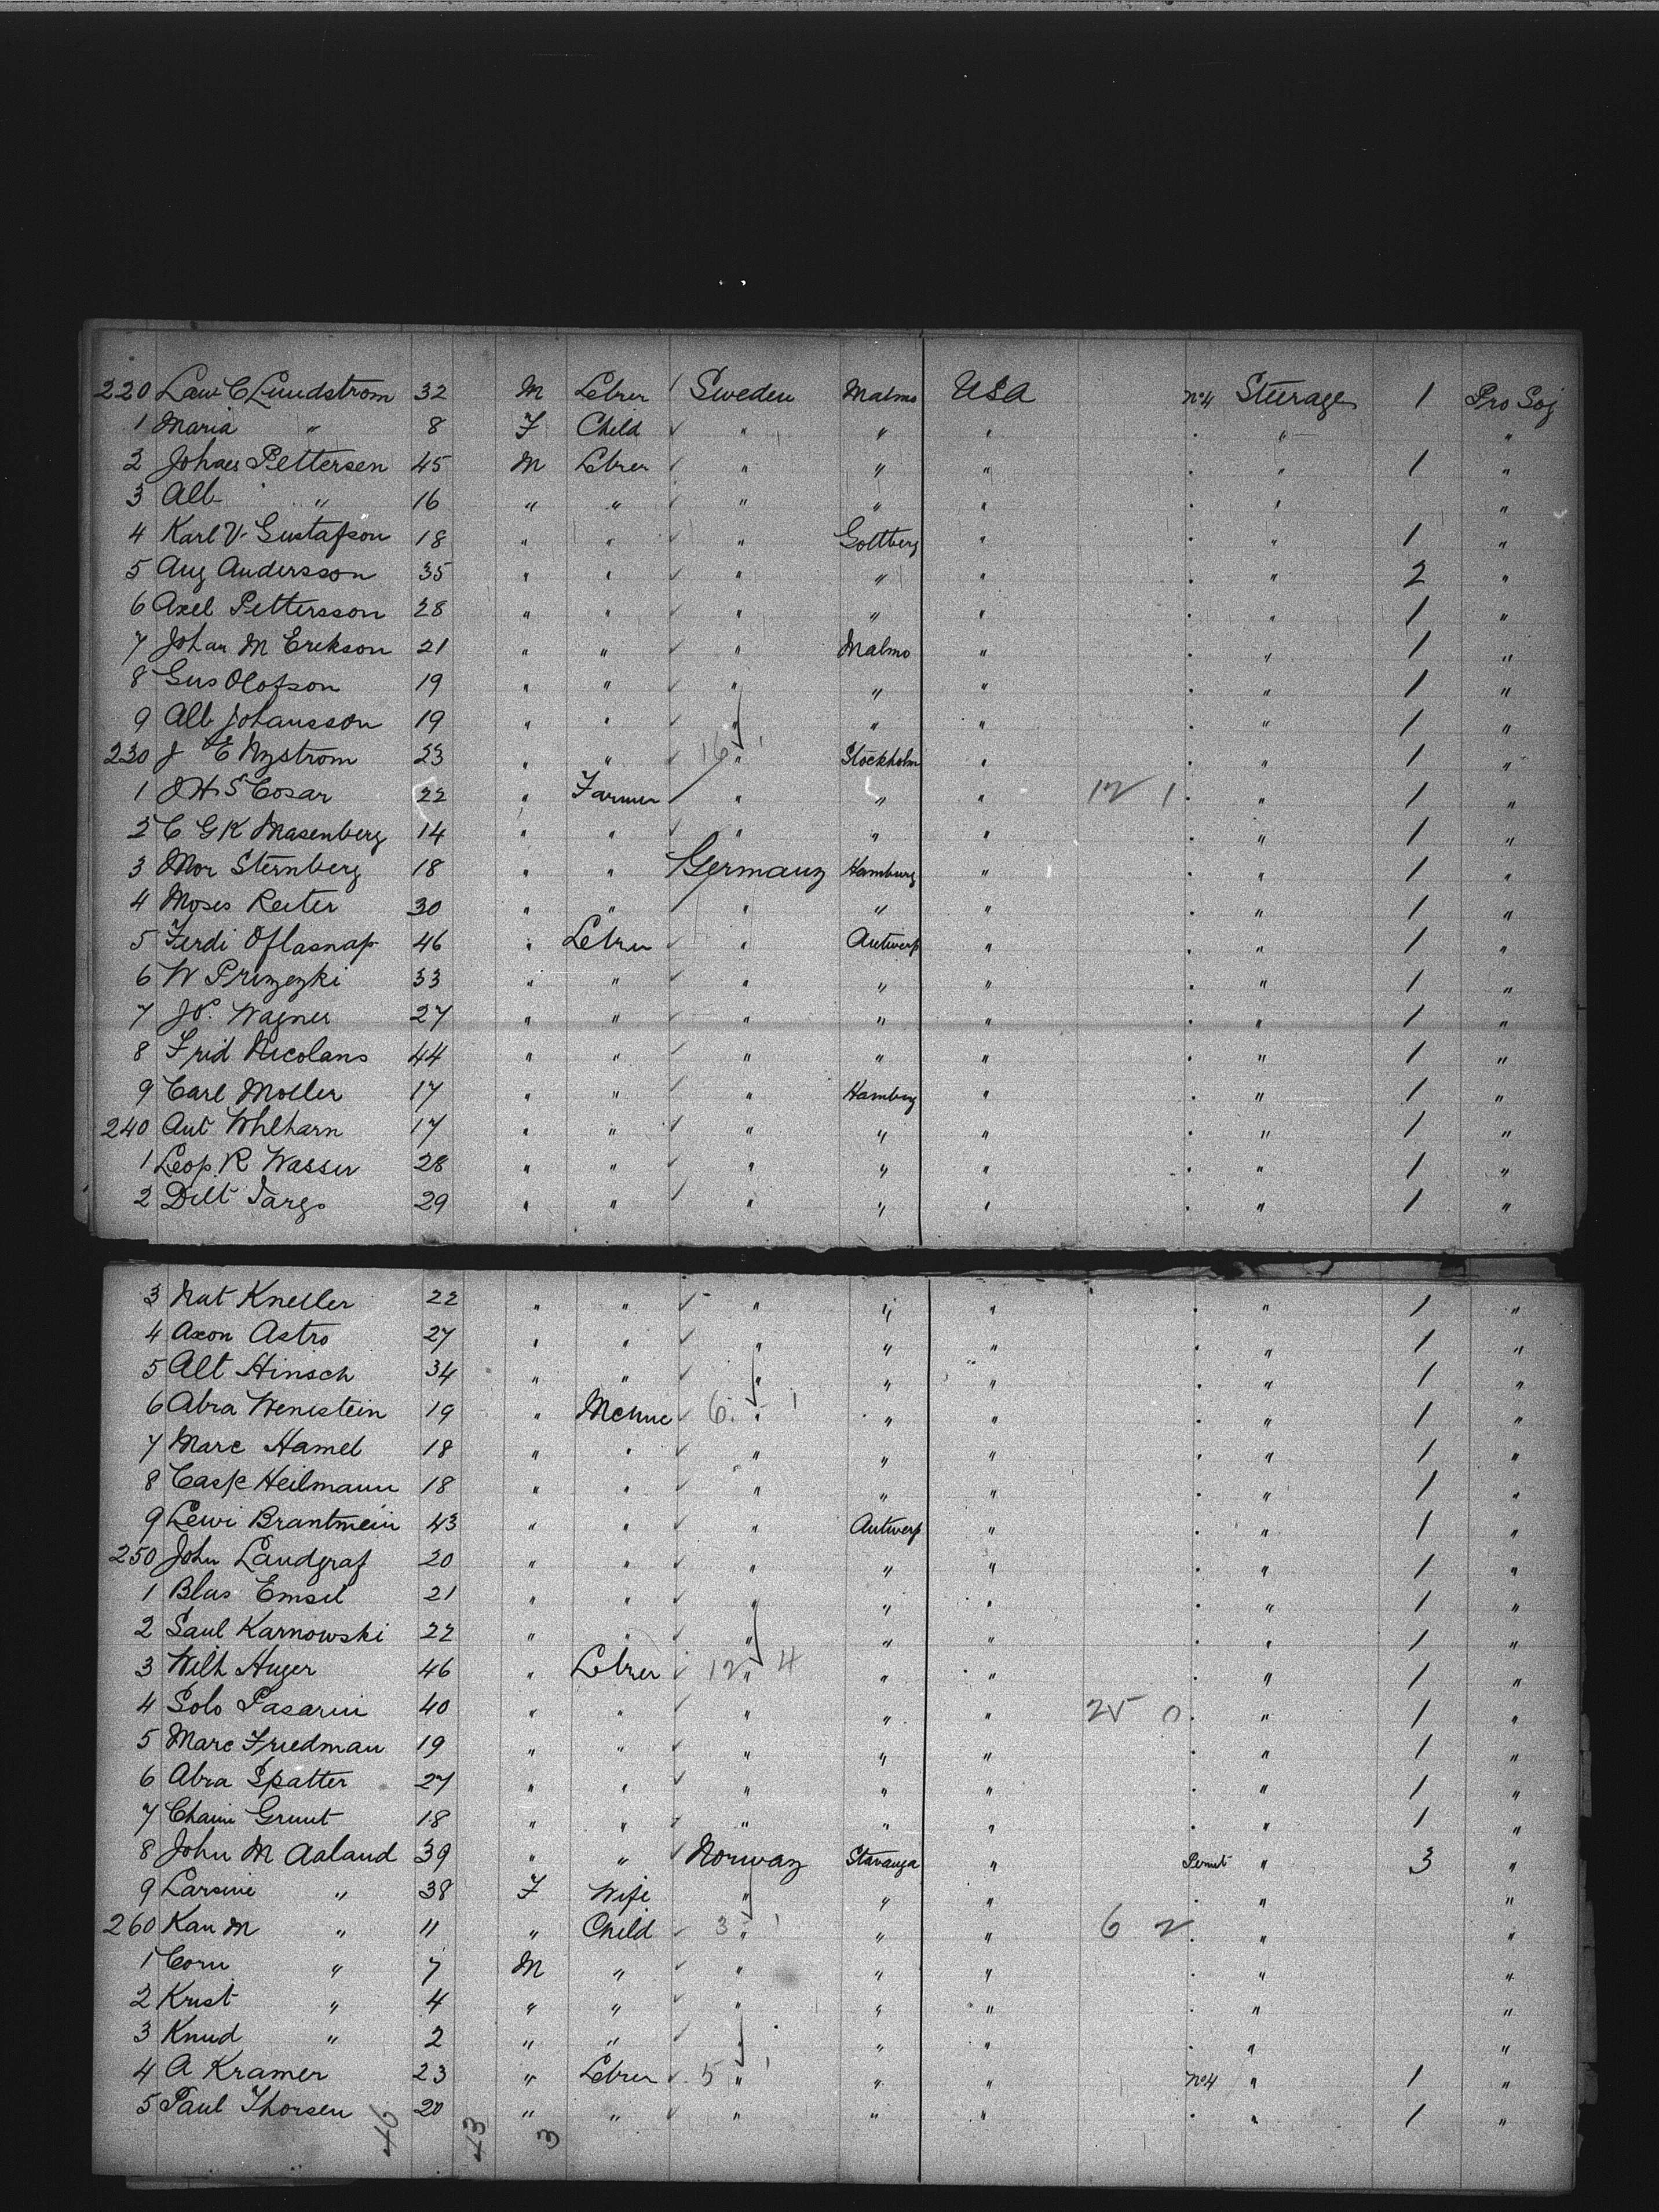 220 Law C Lundstrom 32 M Lebrer Sweden Malmo USA No4 Steerage 1 Pro Soj
1 Maria " 8 F Child " " " " "
2 Johaes Pettersen 45 M Lebrer " " " " 1 "
3 Alb " 16 " " " " " " "
4 Karl V. Gustafson 18 " " " Gottberg " " 1 "
5 Aug Andersson 35 " " " " " " 2 "
6 Axel Pettersson 28 " " " " " " 1 "
7 Johan M Erekson 21 " " " Malmo " " 1 "
8 Gus Olofson 19 " " " " " " 1 "
9 Alb Johansson 19 " " " " " " 1 "
230 J E Nystrom 23 " " 16 " 1 Stockholm " " 1 "
1 J H S Cosar 22 " Farmer " " " 12 1 " 1 "
2 C G K Masenberg 14 " " " " " " 1 "
3 Mor Sternberg 18 " " Germany Hamburg " " 1 "
4 Moses Reiter 30 " " " " " " 1 "
5 Ferdi Oflasnap 46 " Lebrer " Antwerp " " 1 "
6 W Przezki 33 " " " " " " 1 "
7 Jos. Wagner 27 " " " " " " 1 "
8 Frid Nicolans 44 " " " " " " 1 "
9 Carl Moller 17 " " " Hamburg " " 1 "
240 Ant Whlharn 17 " " " " " " 1 "
1 Leop. R Wasser 28 " " " " " " 1 "
2 Delt Targo 29 " " " " " " 1 "
3 Nat Kneller 22 " " " " " " 1 "
4 Axon Astro 27 " " " " " " 1 "
5 Alt Hinsch 34 " " " " " " 1 "
6 Abra Wenistein 19 " Mchnc 6 " 1 " " " 1 "
7 Marc Hamel 18 " " " " " " 1 "
8 Casp Heilmann 18 " " " " " " 1 "
9 Lewi Brantmein 43 " " " Antwerp " " 1 "
250 John Landgraf 20 " " " " " " 1 "
1 Blas Emsel 21 " " " " " " 1 "
2 Saul Karnowski 22 " " " " " " 1 "
3 Wilh Huger 46 " Lebrer 12 " 4 " " " 1 "
4 Solo Pasarin 40 " " " " " 25 0 " 1 "
5 Marc Friedman 19 " " " " " " 1 "
6 Abra Spatter 27 " " " " " " 1 "
7 Chaim Grunt 18 " " " " " " 1 "
8 John M Aaland 39 " " Norway Stavanga " Permt " 3 "
9 Larsine " 38 F Wife " " " " "
260 Kan M " 11 " Child 3 " 1 " " 6 2 " "
1 Corn " 7 M " " " " " "
2 Krist " 4 " " " " " " "
3 Knud " 2 " " " " " " "
4 A Kramer 23 " Lebrer 5 " 1 " " No4 " 1 "
5 Paul Thorsen 20 " " " " " " 1 "
46 43 3